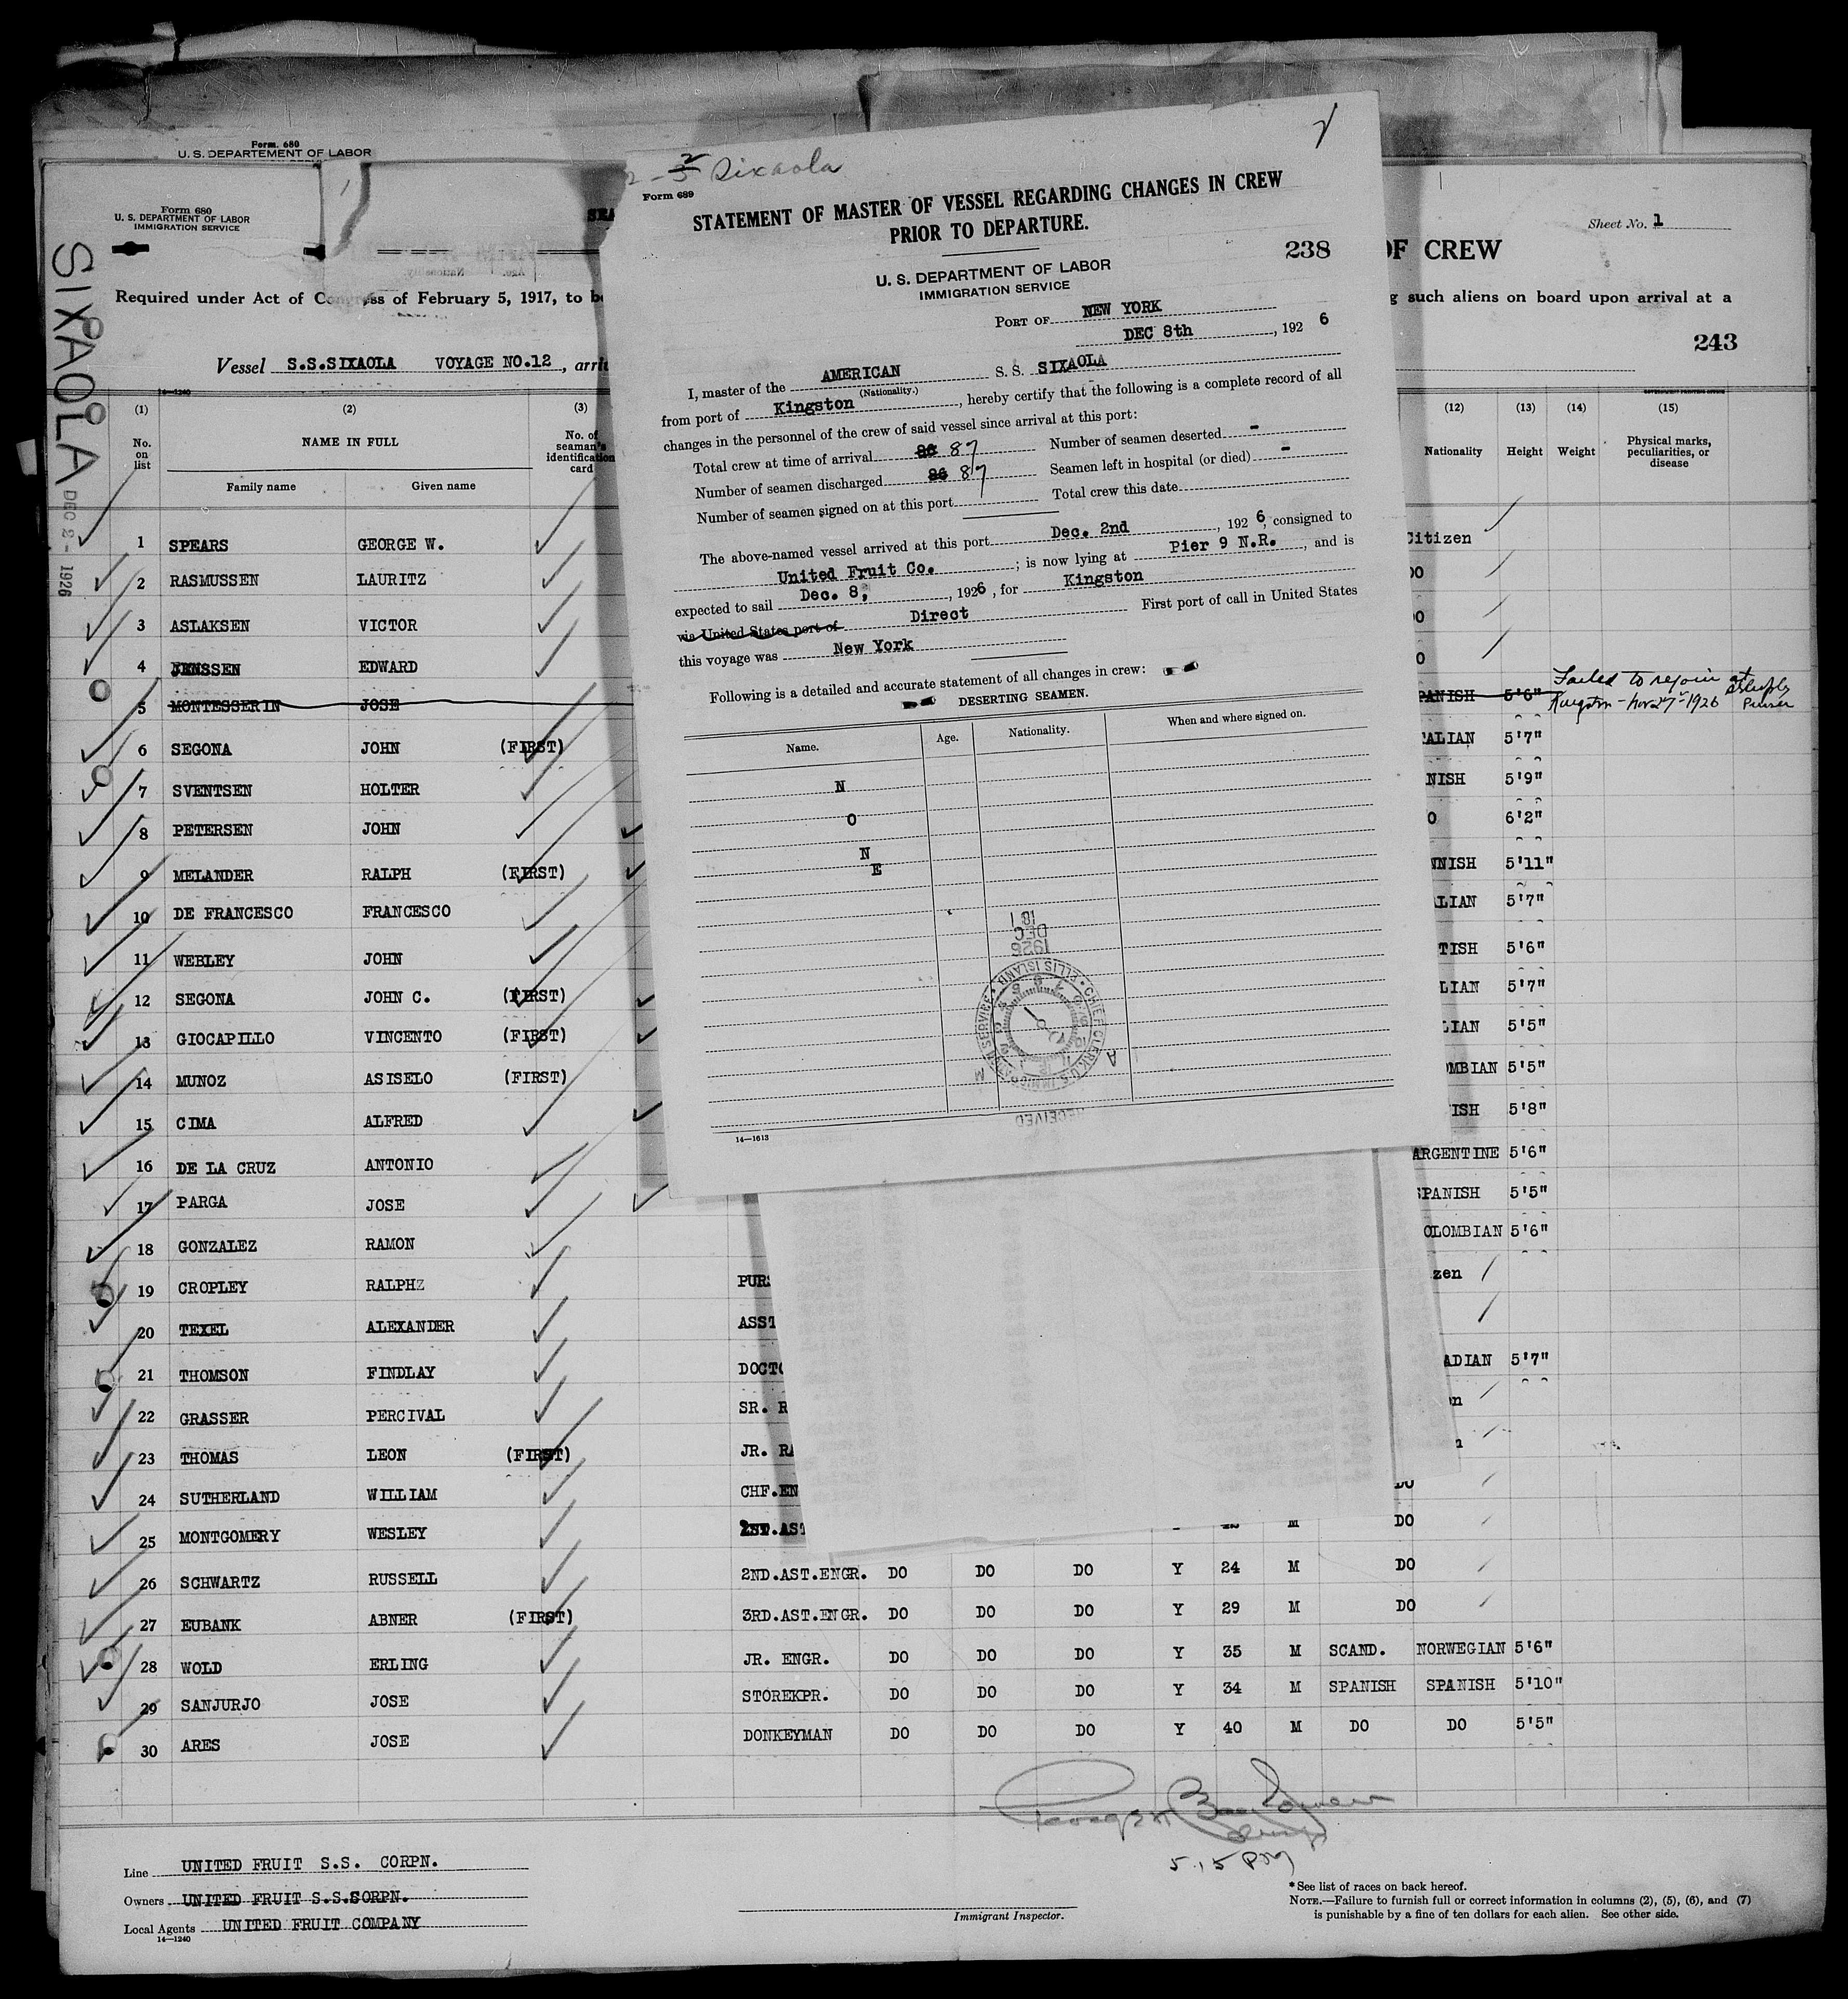 Form. 680
U. S. DEPARTEMENT OF LABOR
Form 680
U. S. DEPARTMENT OF LABOR
IMMIGRATION SERVICE
SIXAOLA
DEC 2 - 1926
Sheet No. 1
OF CREW
Required under Act of Congress of February 5, 1917, to b
such aliens on board upon arrival at a
243
Vessel S.S.SIXAOLA VOYAGE NO.12, arri
14—1240
(1) (2) (3)
No. on list
NAME IN FULL
Family name Given name
No. of seaman's identification card
(12) (13) (14) (15)
Nationality Height Weight Physical marks, peculiarities, or disease
1 SPEARS GEORGE W. Citizen
2 RASMUSSEN LAURITZ DO
3 ASLAKSEN VICTOR DO
4 JENSSEN EDWARD O
5 MONTESSERIN JOSE PANISH 5'6" Failed to rejoin at Kingston - Nov 27 - 1926 Purser
6 SEGONA JOHN (FIRST) TALIAN 5'7"
7 SVENTSEN HOLTER NISH 5'9"
8 PETERSEN JOHN O 6'2"
9 MELANDER RALPH (FIRST) NNISH 5'11"
10 DE FRANCESCO FRANCESCO LIAN 5'7"
11 WEBLEY JOHN TISH 5'6"
12 SEGONA JOHN C. (FIRST) LIAN 5'7"
13 GIOCAPILLO VINCENTO (FIRST) LIAN 5'5"
14 MUNOZ ASISELO (FIRST) OMBIAN 5'5"
15 CIMA ALFRED ISH 5'8"
16 DE LA CRUZ ANTONIO ARGENTINE 5'6"
17 PARGA JOSE SPANISH 5'5"
18 GONZALEZ RAMON OLOMBIAN 5'6"
19 CROPLEY RALPHZ PURS zen
20 TEXEL ALEXANDER ASST
21 THOMSON FINDLAY DOCTO ADIAN 5'7"
22 GRASSER PERCIVAL SR. R n
23 THOMAS LEON (FIRST) JR. RA
24 SUTHERLAND WILLIAM CHF.EN DO
25 MONTGOMERY WESLEY AST M DO
26 SCHWARTZ RUSSELL 2ND.AST.ENGR. DO DO DO Y 24 M DO
27 EUBANK ABNER (FIRST) 3RD.AST.ENGR. DO DO DO Y 29 M DO
28 WOLD ERLING JR. ENGR. DO DO DO Y 35 M SCAND. NORWEGIAN 5'6"
29 SANJURJO JOSE STOREKPR. DO DO DO Y 34 M SPANISH SPANISH 5'10"
30 ARES JOSE DONKEYMAN DO DO DO Y 40 M DO DO 5'5"
5.15 PM
Line UNITED FRUIT S.S. CORPN.
Owners UNITED FRUIT S.S.CORPN.
Local Agents UNITED FRUIT COMPANY
14—1240
Immigrant Inspector.
*See list of races on back hereof.
NOTE.—Failure to furnish full or correct information in columns (2), (5), (6), and (7)
is punishable by a fine of ten dollars for each alien. See other side.
Sixaola
Form 689
STATEMENT OF MASTER OF VESSEL REGARDING CHANGES IN CREW
PRIOR TO DEPARTURE.
238
U. S. DEPARTMENT OF LABOR
IMMIGRATION SERVICE
PORT OF NEW YORK
DEC 8th, 1926
I, master of the AMERICAN S. S. SIXAOLA
(Nationality.)
from port of Kingston, hereby certify that the following is a complete record of all
changes in the personnel of the crew of said vessel since arrival at this port:
Total crew at time of arrival 86 87 Number of seamen deserted -
Number of seamen discharged 86 87 Seamen left in hospital (or died) -
Number of seamen signed on at this port Total crew this date
The above-named vessel arrived at this port Dec. 2nd, 1926, consigned to
United Fruit Co.; is now lying at Pier 9 N.R., and is
expected to sail Dec. 8, 1926, for Kingston
via United States port of Direct First port of call in United States
this voyage was New York
Following is a detailed and accurate statement of all changes in crew:
DESERTING SEAMEN.
Name. Age. Nationality. When and where signed on.
N
O
N
E
RECEIVED
CHIEF CLERK, U.S. IMMIGRATION SERVICE ELLIS ISLAND
1926
DEC
14—1613